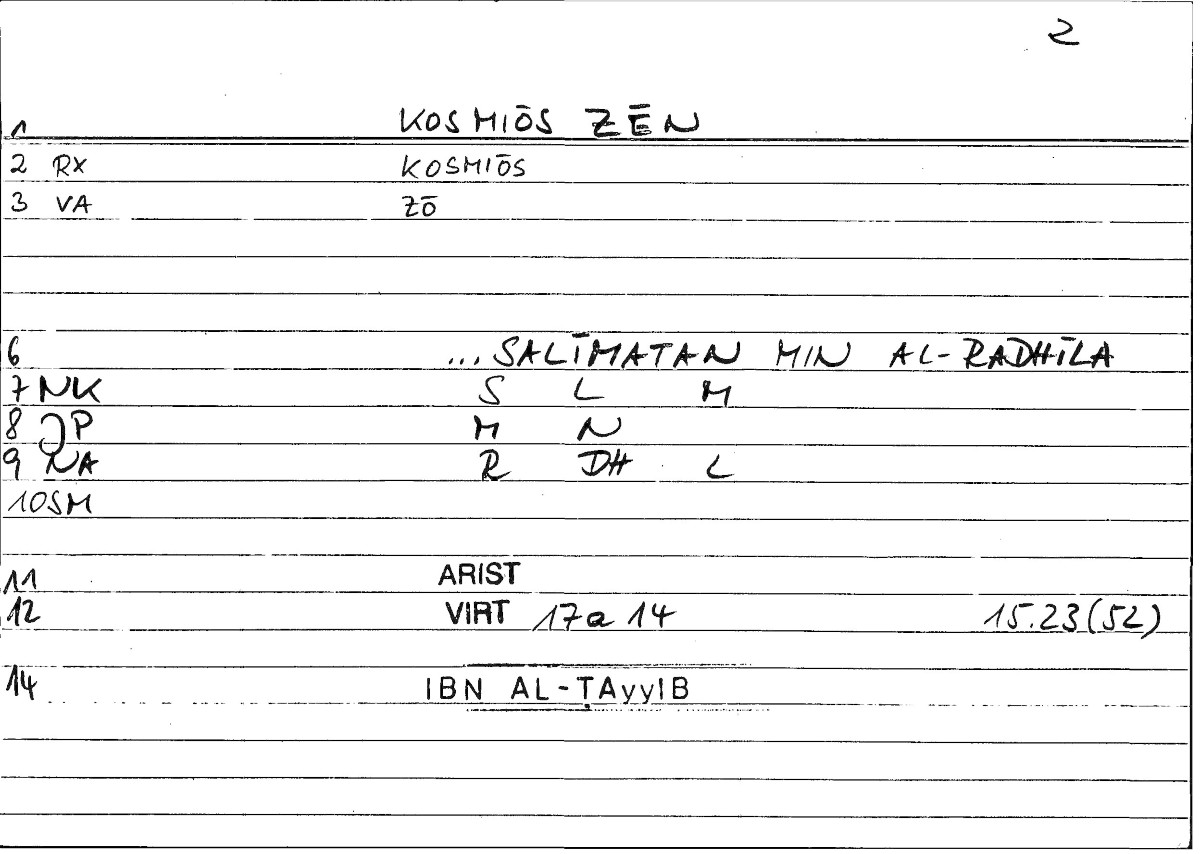 2
1 KOSMIŌS ZĒN
2 RX KOSMIŌS
3 VA ZŌ
6 ...SALĪMATAN MIN AL-RADHĪLA
7 NK S L M
8 JP M N
9 NA R DH L
10 SM
11 ARIST
12 VIRT 17a 14 15.23(52)
14 IBN AL-ṬAyyIB